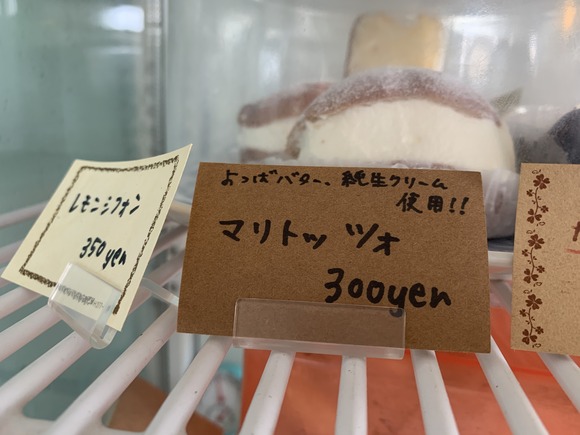 レモンシフォン
350yen
よつばバター、純生クリーム
使用!!
マリトッツォ
300yen